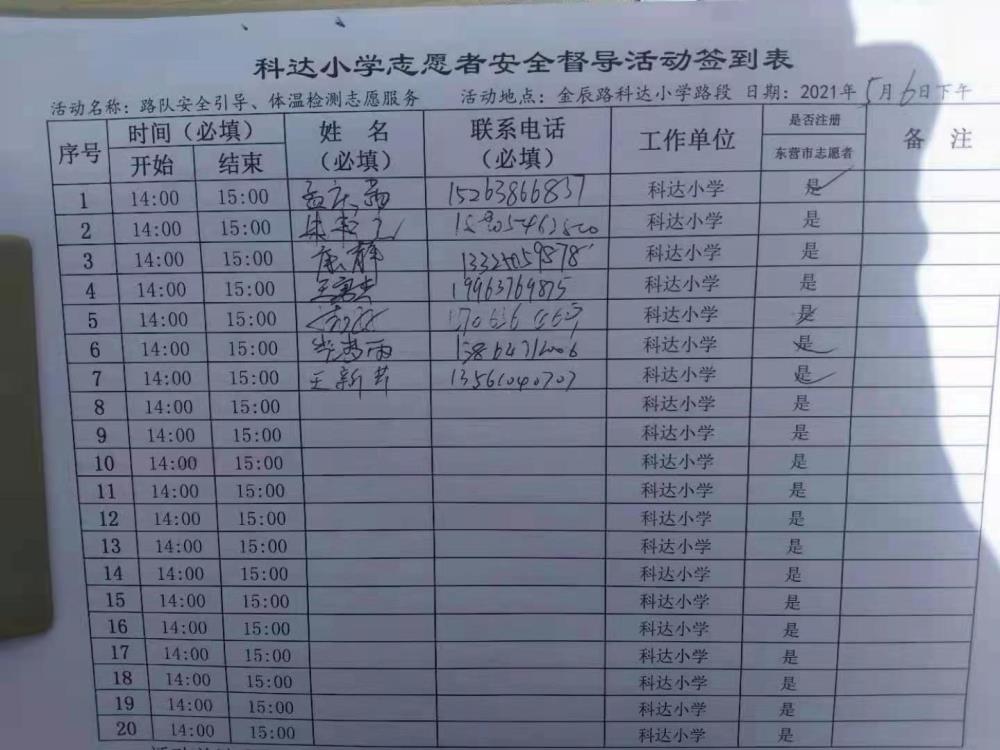 科达小学志愿者安全督导活动签到表
活动名称：路队安全引导、体温检测志愿服务 活动地点：金辰路科达小学路段 日期：2021年5月6日下午
序号 时间（必填） 姓 名（必填） 联系电话（必填） 工作单位 是否注册东营市志愿者 备 注
开始 结束
1 14:00 15:00 15263866837 科达小学 是
2 14:00 15:00 科达小学 是
3 14:00 15:00 康静 科达小学 是
4 14:00 15:00 19963769875 科达小学 是
5 14:00 15:00 科达小学 是
6 14:00 15:00 科达小学 是
7 14:00 15:00 王新芳 13561040707 科达小学 是
8 14:00 15:00 科达小学 是
9 14:00 15:00 科达小学 是
10 14:00 15:00 科达小学 是
11 14:00 15:00 科达小学 是
12 14:00 15:00 科达小学 是
13 14:00 15:00 科达小学 是
14 14:00 15:00 科达小学 是
15 14:00 15:00 科达小学 是
16 14:00 15:00 科达小学 是
17 14:00 15:00 科达小学 是
18 14:00 15:00 科达小学 是
19 14:00 15:00 科达小学 是
20 14:00 15:00 科达小学 是